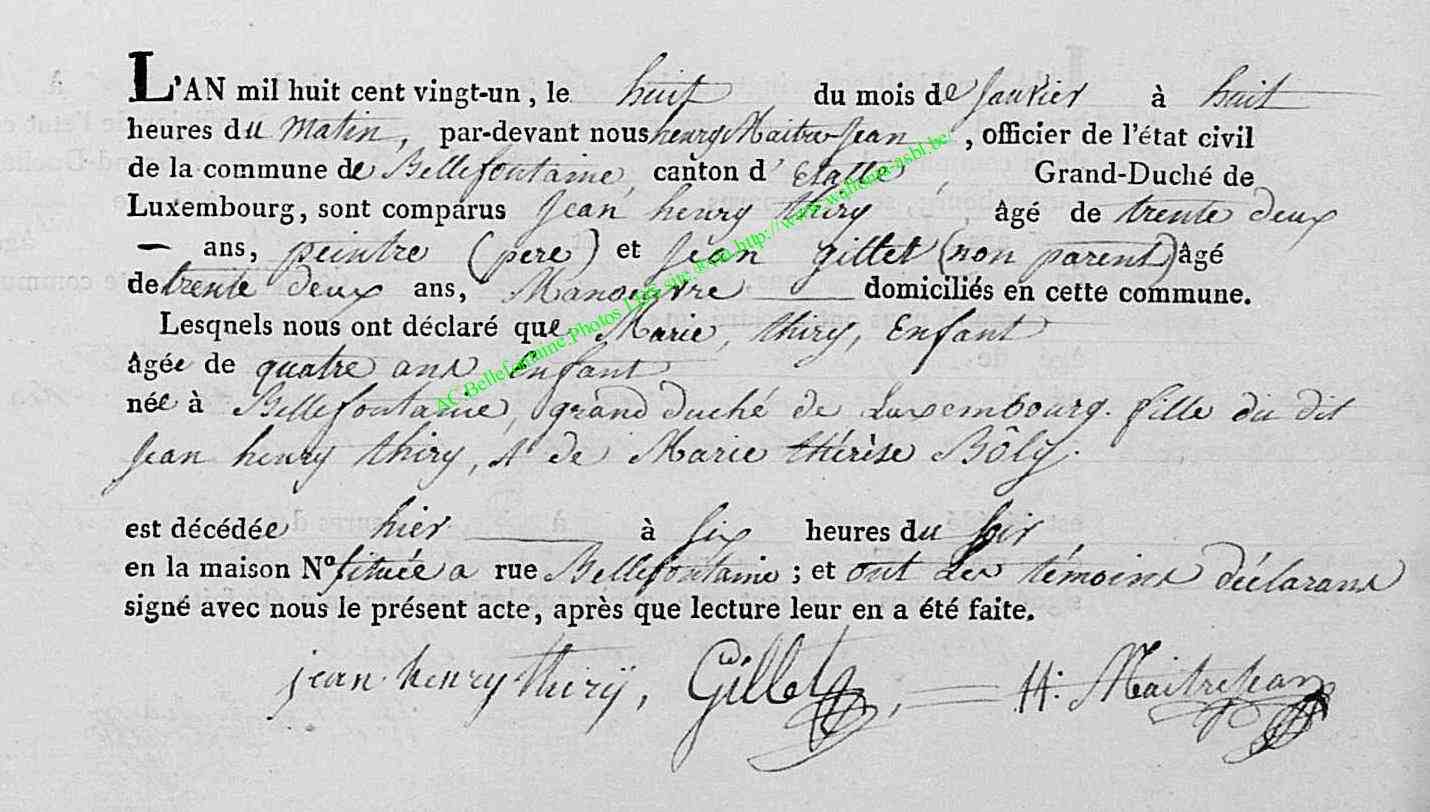 L'AN mil huit cent vingt-un, le huit du mois de Janvier à huit
heures du matin, par-devant nous henry Maitre-Jean, officier de l'état civil
de la commune de Bellefontaine, canton d'Etalle, Grand-Duché de
Luxembourg, sont comparus Jean henry thiry âgé de trente deux
— ans, peintre (pere) et Jean gillet (non parent) âgé
de trente deux ans, Manoeuvre domiciliés en cette commune.
Lesqnels nous ont déclaré que Marie, thiry, Enfant
âgée de quatre ans Enfant
née à Bellefontaine, grand duché de Luxembourg. fille du dit
Jean henry thiry, & de Marie thérèse Bôly.
est décédée hier à six heures du soir
en la maison N° située a rue Bellefontaine ; et ont les témoins déclarans
signé avec nous le présent acte, après que lecture leur en a été faite.
jean henry thirÿ, Gillet, H: MaitreJean
AC Bellefontaine Photos LDS site dcfm http://www.wallonia-asbl.be/